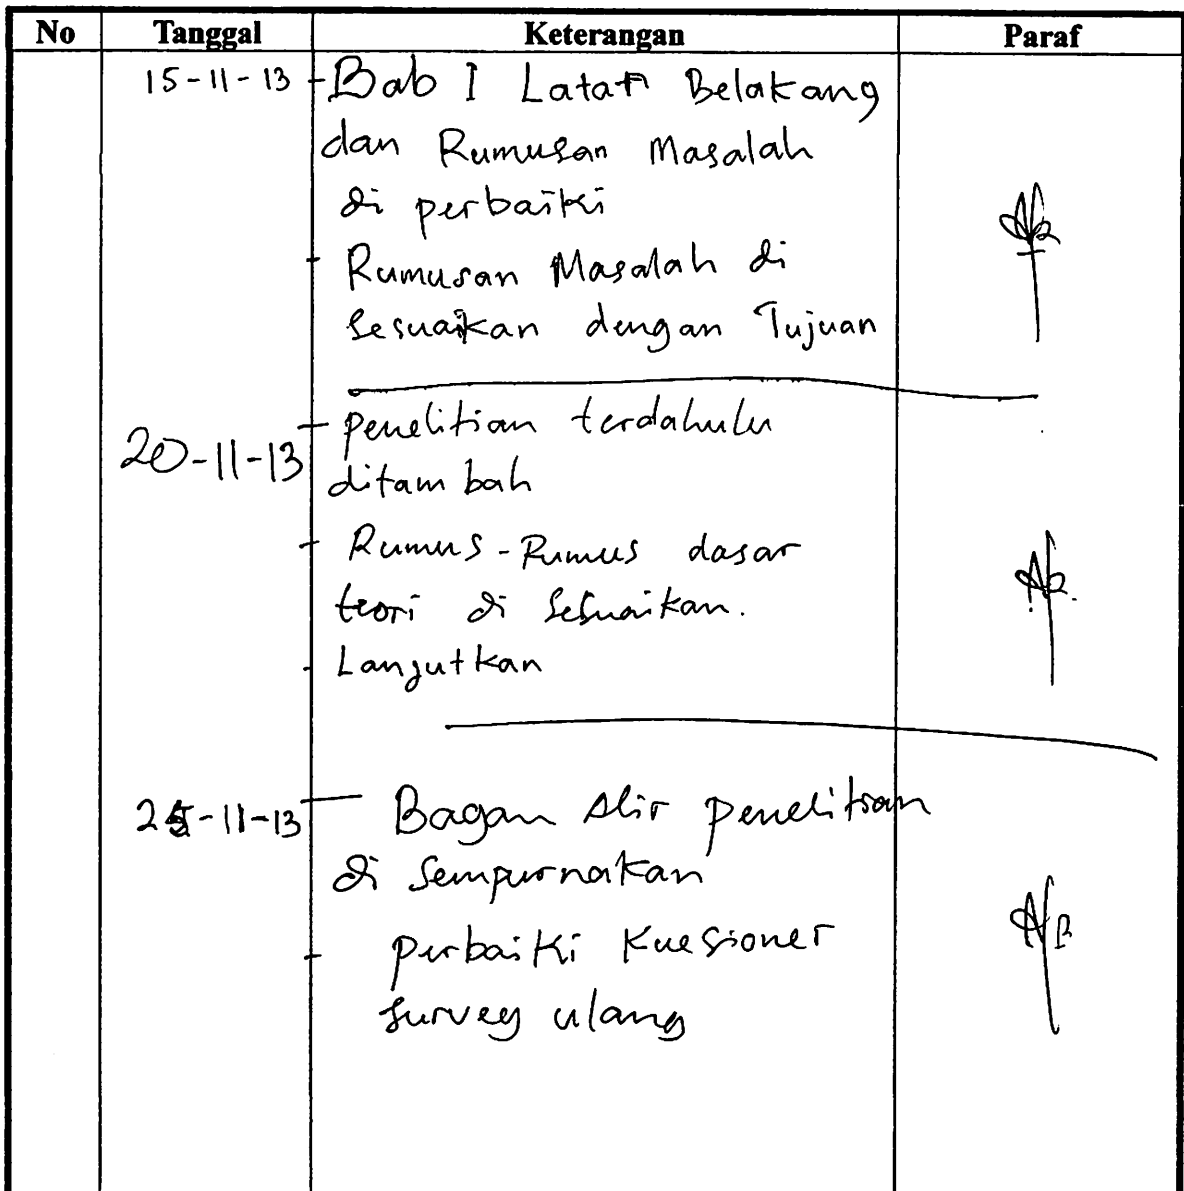 No Tanggal Keterangan Paraf
15-11-13 - Bab I Latar Belakang
dan Rumusan Masalah
di perbaiki
- Rumusan Masalah di
sesuaikan dengan Tujuan
20-11-13 - penelitian terdahulu
ditambah
- Rumus-Rumus dasar
teori di sesuaikan.
- Lanjutkan
25-11-13 - Bagan Alir penelitian
di sempurnakan
- perbaiki Kuesioner
survey ulang